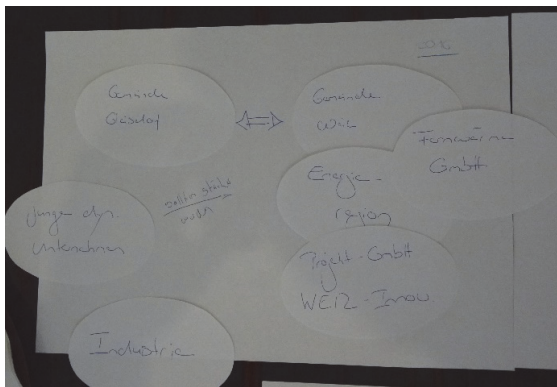 2010
Gemeinde
Gasdorf
Gemeinde
Weiz
Fernwärme
GmbH
Energie-
region
Junge dyn.
Unternehmen
Projekt-GmbH
WEIZ-Innov.
Industrie